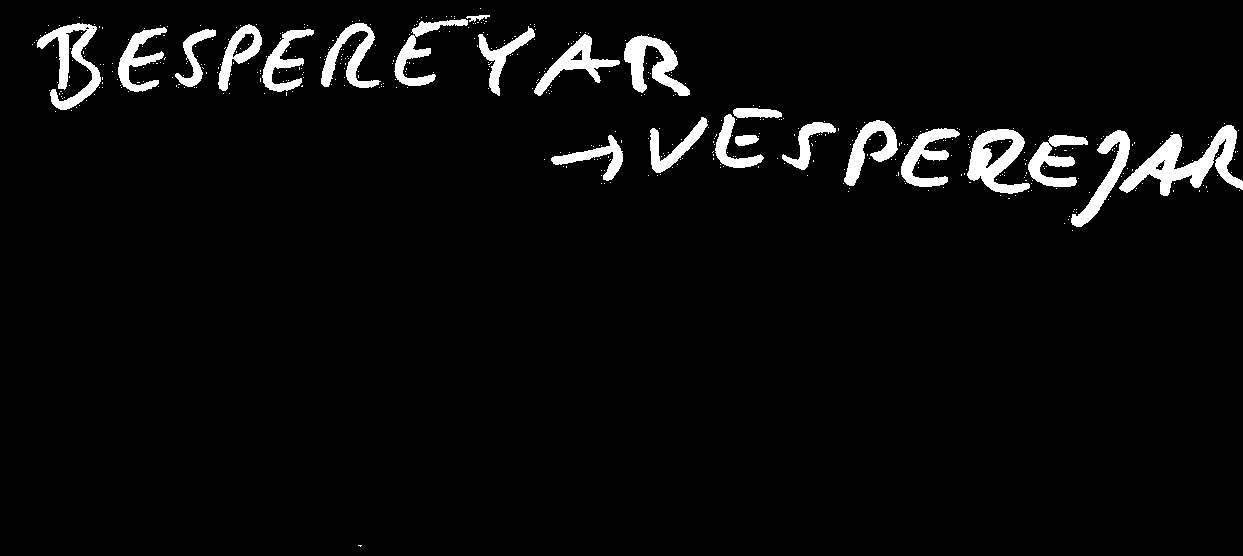 BESPEREYAR
→VESPEREJAR